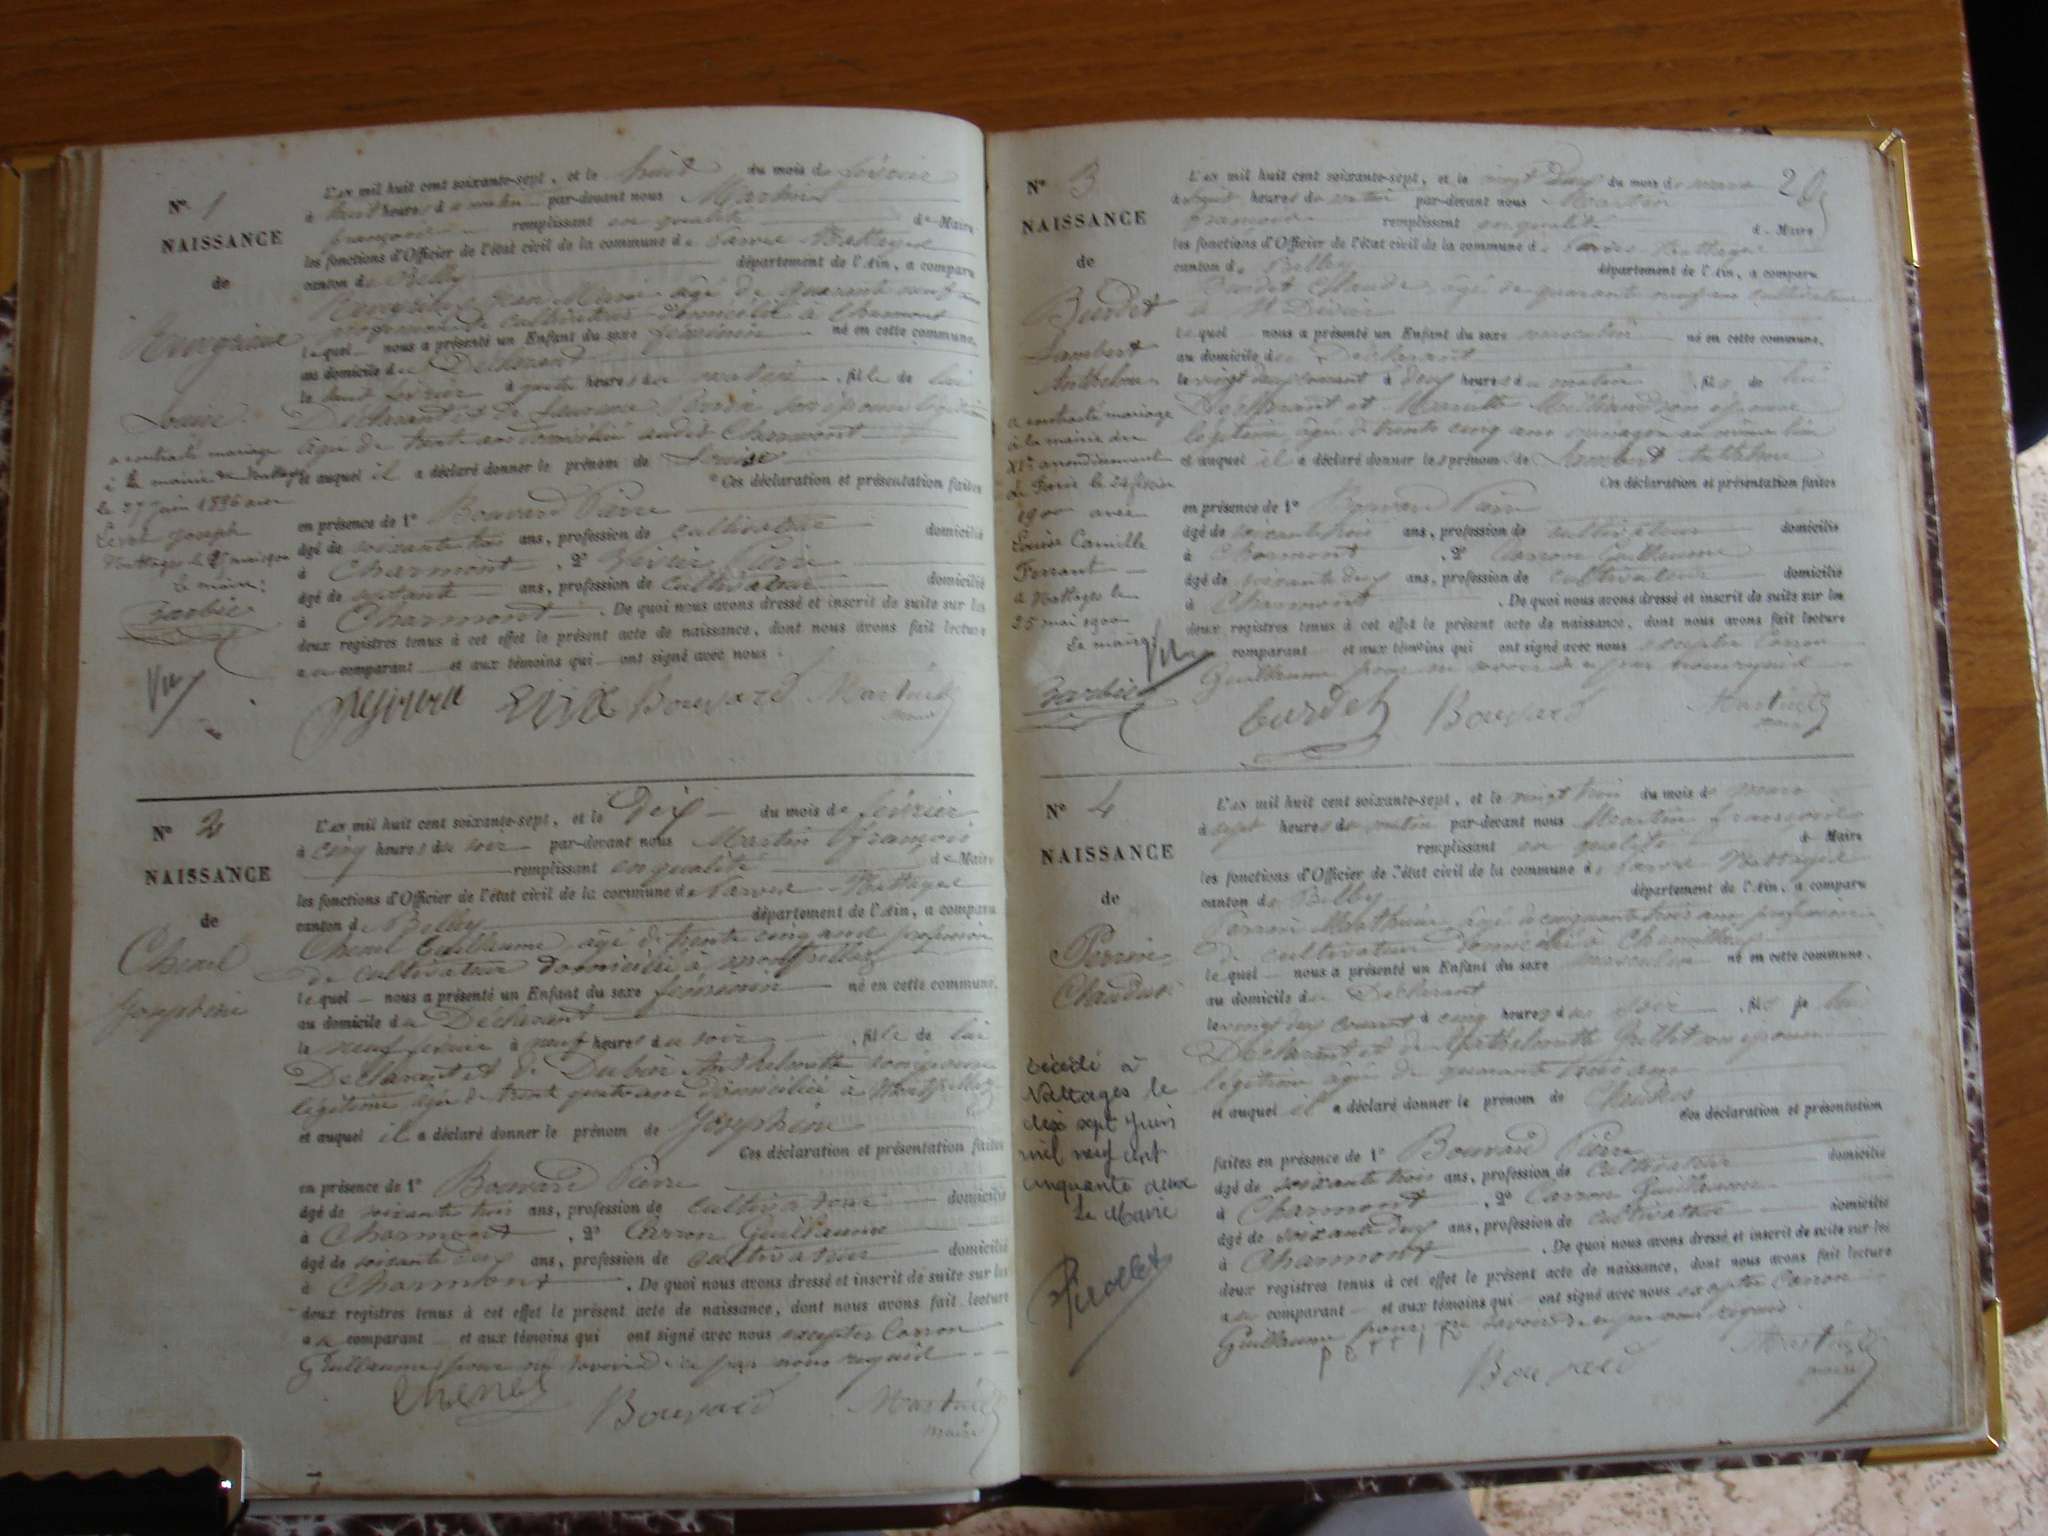 Nº 1
NAISSANCE
de
Louise
a contracté mariage
à la mairie de Nattages
le 27 juin 1896 avec
Joseph
Nattages le 25 mai 1900
le maire:
Barbier
Vu
L'an mil huit cent soixante-sept, et le huit du mois de février
à huit heures du matin par-devant nous Martin
françois remplissant en qualité de Maire
les fonctions d'Officier de l'état civil de la commune de Parves Nattages
canton de Belley département de l'Ain, a comparu
Jean Marie âgé de quarante neuf ans
profession de cultivateur domicilié à Charmont
lequel nous a présenté un Enfant du sexe féminin né en cette commune,
au domicile du Déclarant
le huit février à quatre heures du matin, fille de lui
Déclarant et de Laurence son épouse légitime
âgée de trente ans domiciliée audit Charmont
et auquel il a déclaré donner le prénom de Louise
Ces déclaration et présentation faites
en présence de 1º Bouvard Pierre
âgé de soixante trois ans, profession de cultivateur domicilié
à Charmont, 2º
âgé de ans, profession de cultivateur domicilié
à Charmont. De quoi nous avons dressé et inscrit de suite sur les
deux registres tenus à cet effet le présent acte de naissance, dont nous avons fait lecture
au comparant et aux témoins qui ont signé avec nous.
Bouvard Martin
maire
Nº 2
NAISSANCE
de
Chenel
Joséphine
L'an mil huit cent soixante-sept, et le Dix du mois de février
à cinq heures du soir par-devant nous Martin françois
remplissant en qualité de Maire
les fonctions d'Officier de l'état civil de la commune de Parves Nattages
canton de Belley département de l'Ain, a comparu
Chenel Guillaume, âgé de trente cinq ans profession
de cultivateur domicilié à
lequel nous a présenté un Enfant du sexe féminin né en cette commune,
au domicile du Déclarant
le neuf février à neuf heures du soir, fille de lui
Déclarant et de Dubin Anthelmette son épouse
légitime âgée de trente quatre ans domiciliée à
et auquel il a déclaré donner le prénom de Joséphine
Ces déclaration et présentation faites
en présence de 1º Bouvard Pierre
âgé de soixante trois ans, profession de cultivateur domicilié
à Charmont, 2º Carron Guillaume
âgé de soixante deux ans, profession de cultivateur domicilié
à Charmont. De quoi nous avons dressé et inscrit de suite sur les
deux registres tenus à cet effet le présent acte de naissance, dont nous avons fait lecture
au comparant et aux témoins qui ont signé avec nous excepter Carron
Guillaume pour ne savoir de ce par nous requis
Chenel Bouvard Martin
maire
Nº 3
NAISSANCE
de
Burdet
Lambert
Anthelme
a contracté mariage
à la mairie du
XIe arrondissement
de Paris le 24 février
1900 avec
Louise Camille
Ferrant
à Nattages le
25 mai 1900
Le maire
Vu
Barbier
L'an mil huit cent soixante-sept, et le vingt deux du mois de mars
à huit heures du matin par-devant nous Martin
françois remplissant en qualité de Maire
les fonctions d'Officier de l'état civil de la commune de Parves Nattages
canton de Belley département de l'Ain, a comparu
Burdet Claude, âgé de quarante neuf ans cultivateur
lequel nous a présenté un Enfant du sexe masculin né en cette commune,
au domicile du Déclarant
le vingt deux courant à deux heures du matin, fils de lui
Déclarant et son épouse
légitime âgée de trente cinq ans ménagère au même lieu
et auquel il a déclaré donner les prénom de Lambert Anthelme
Ces déclaration et présentation faites
en présence de 1º Bouvard Pierre
âgé de soixante trois ans, profession de cultivateur domicilié
à Charmont, 2º Carron Guillaume
âgé de soixante deux ans, profession de cultivateur domicilié
à Charmont. De quoi nous avons dressé et inscrit de suite sur les
deux registres tenus à cet effet le présent acte de naissance, dont nous avons fait lecture
au comparant et aux témoins qui ont signé avec nous excepter Carron
Guillaume pour ne savoir de ce par nous requis
burdet Bouvard Martin
maire
Nº 4
NAISSANCE
de
Perrin
Claudius
Décédé à
Nattages le
dix sept Juin
mil neuf cent
cinquante deux
Le Maire
L'an mil huit cent soixante-sept, et le vingt trois du mois de mars
à sept heures du matin par-devant nous Martin françois
remplissant en qualité de Maire
les fonctions d'Officier de l'état civil de la commune de Parves Nattages
canton de Belley département de l'Ain, a comparu
Perrin Mathieu, âgé de cinquante trois ans profession
de cultivateur domicilié à
lequel nous a présenté un Enfant du sexe masculin né en cette commune,
au domicile du Déclarant
le vingt deux courant à cinq heures du soir, fils de lui
Déclarant et de Anthelmette son épouse
légitime âgée de quarante trois ans
et auquel il a déclaré donner le prénom de Claudius
Ces déclaration et présentation
faites en présence de 1º Bouvard Pierre
âgé de soixante trois ans, profession de cultivateur domicilié
à Charmont, 2º Carron Guillaume
âgé de soixante deux ans, profession de cultivateur domicilié
à Charmont. De quoi nous avons dressé et inscrit de suite sur les
deux registres tenus à cet effet le présent acte de naissance, dont nous avons fait lecture
au comparant et aux témoins qui ont signé avec nous excepter Carron
Guillaume pour ne savoir de ce par nous requis.
Bouvard Martin
maire